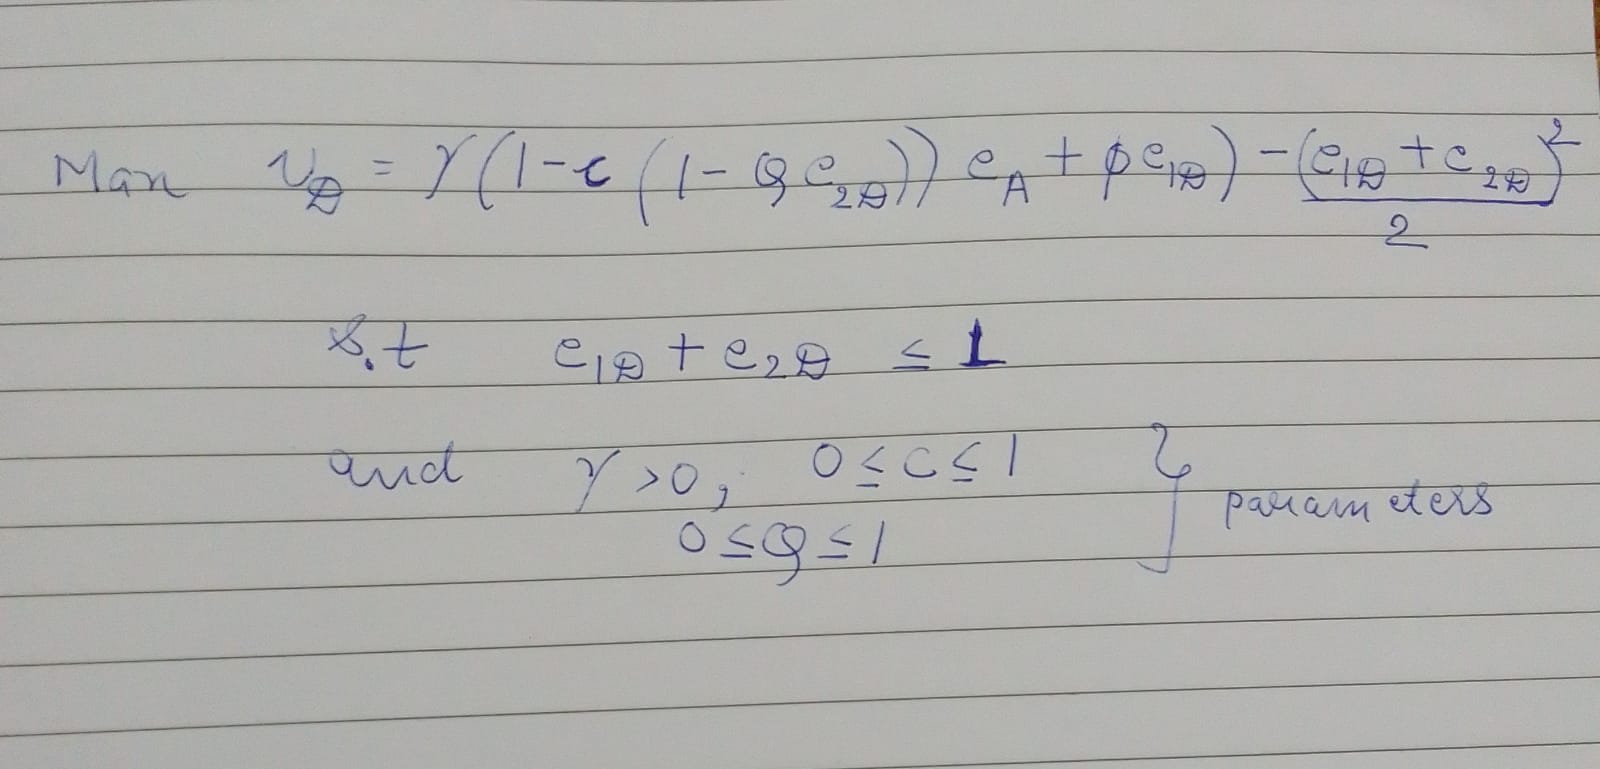 Max v_D = γ(1-c(1-Qe_{2D}))e_A + φe_{1D}) - (e_{1D} + e_{2D})^2 / 2
s.t e_{1D} + e_{2D} ≤ 1
and γ > 0, 0 ≤ c ≤ 1
0 ≤ Q ≤ 1 } parameters